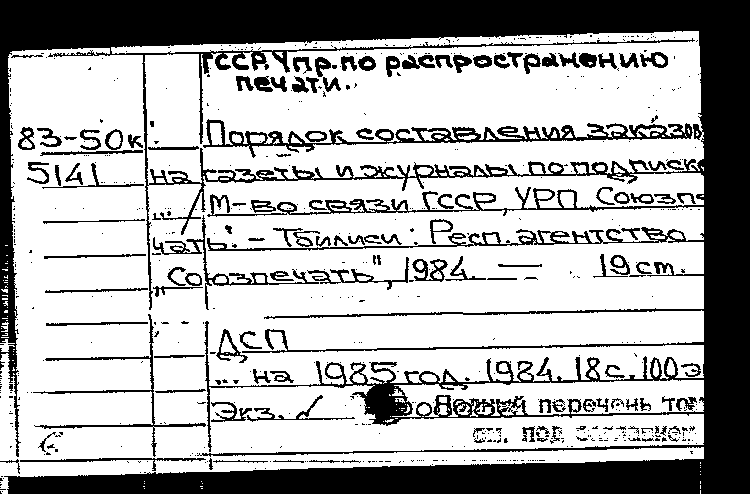 ГССР. Упр. по распространению
печати.
83-50к Порядок составления заказов
5141 на газеты и журналы по подписке
М-во связи ГССР, УРП „Союзпе-
чать". – Тбилиси: Респ. агентство
„Союзпечать", 1984. — 19 ст.
ДСП
... на 1985 год. 1984. 18 с. 100 э
Экз. ✓ Полный перечень том
см. под заглавием